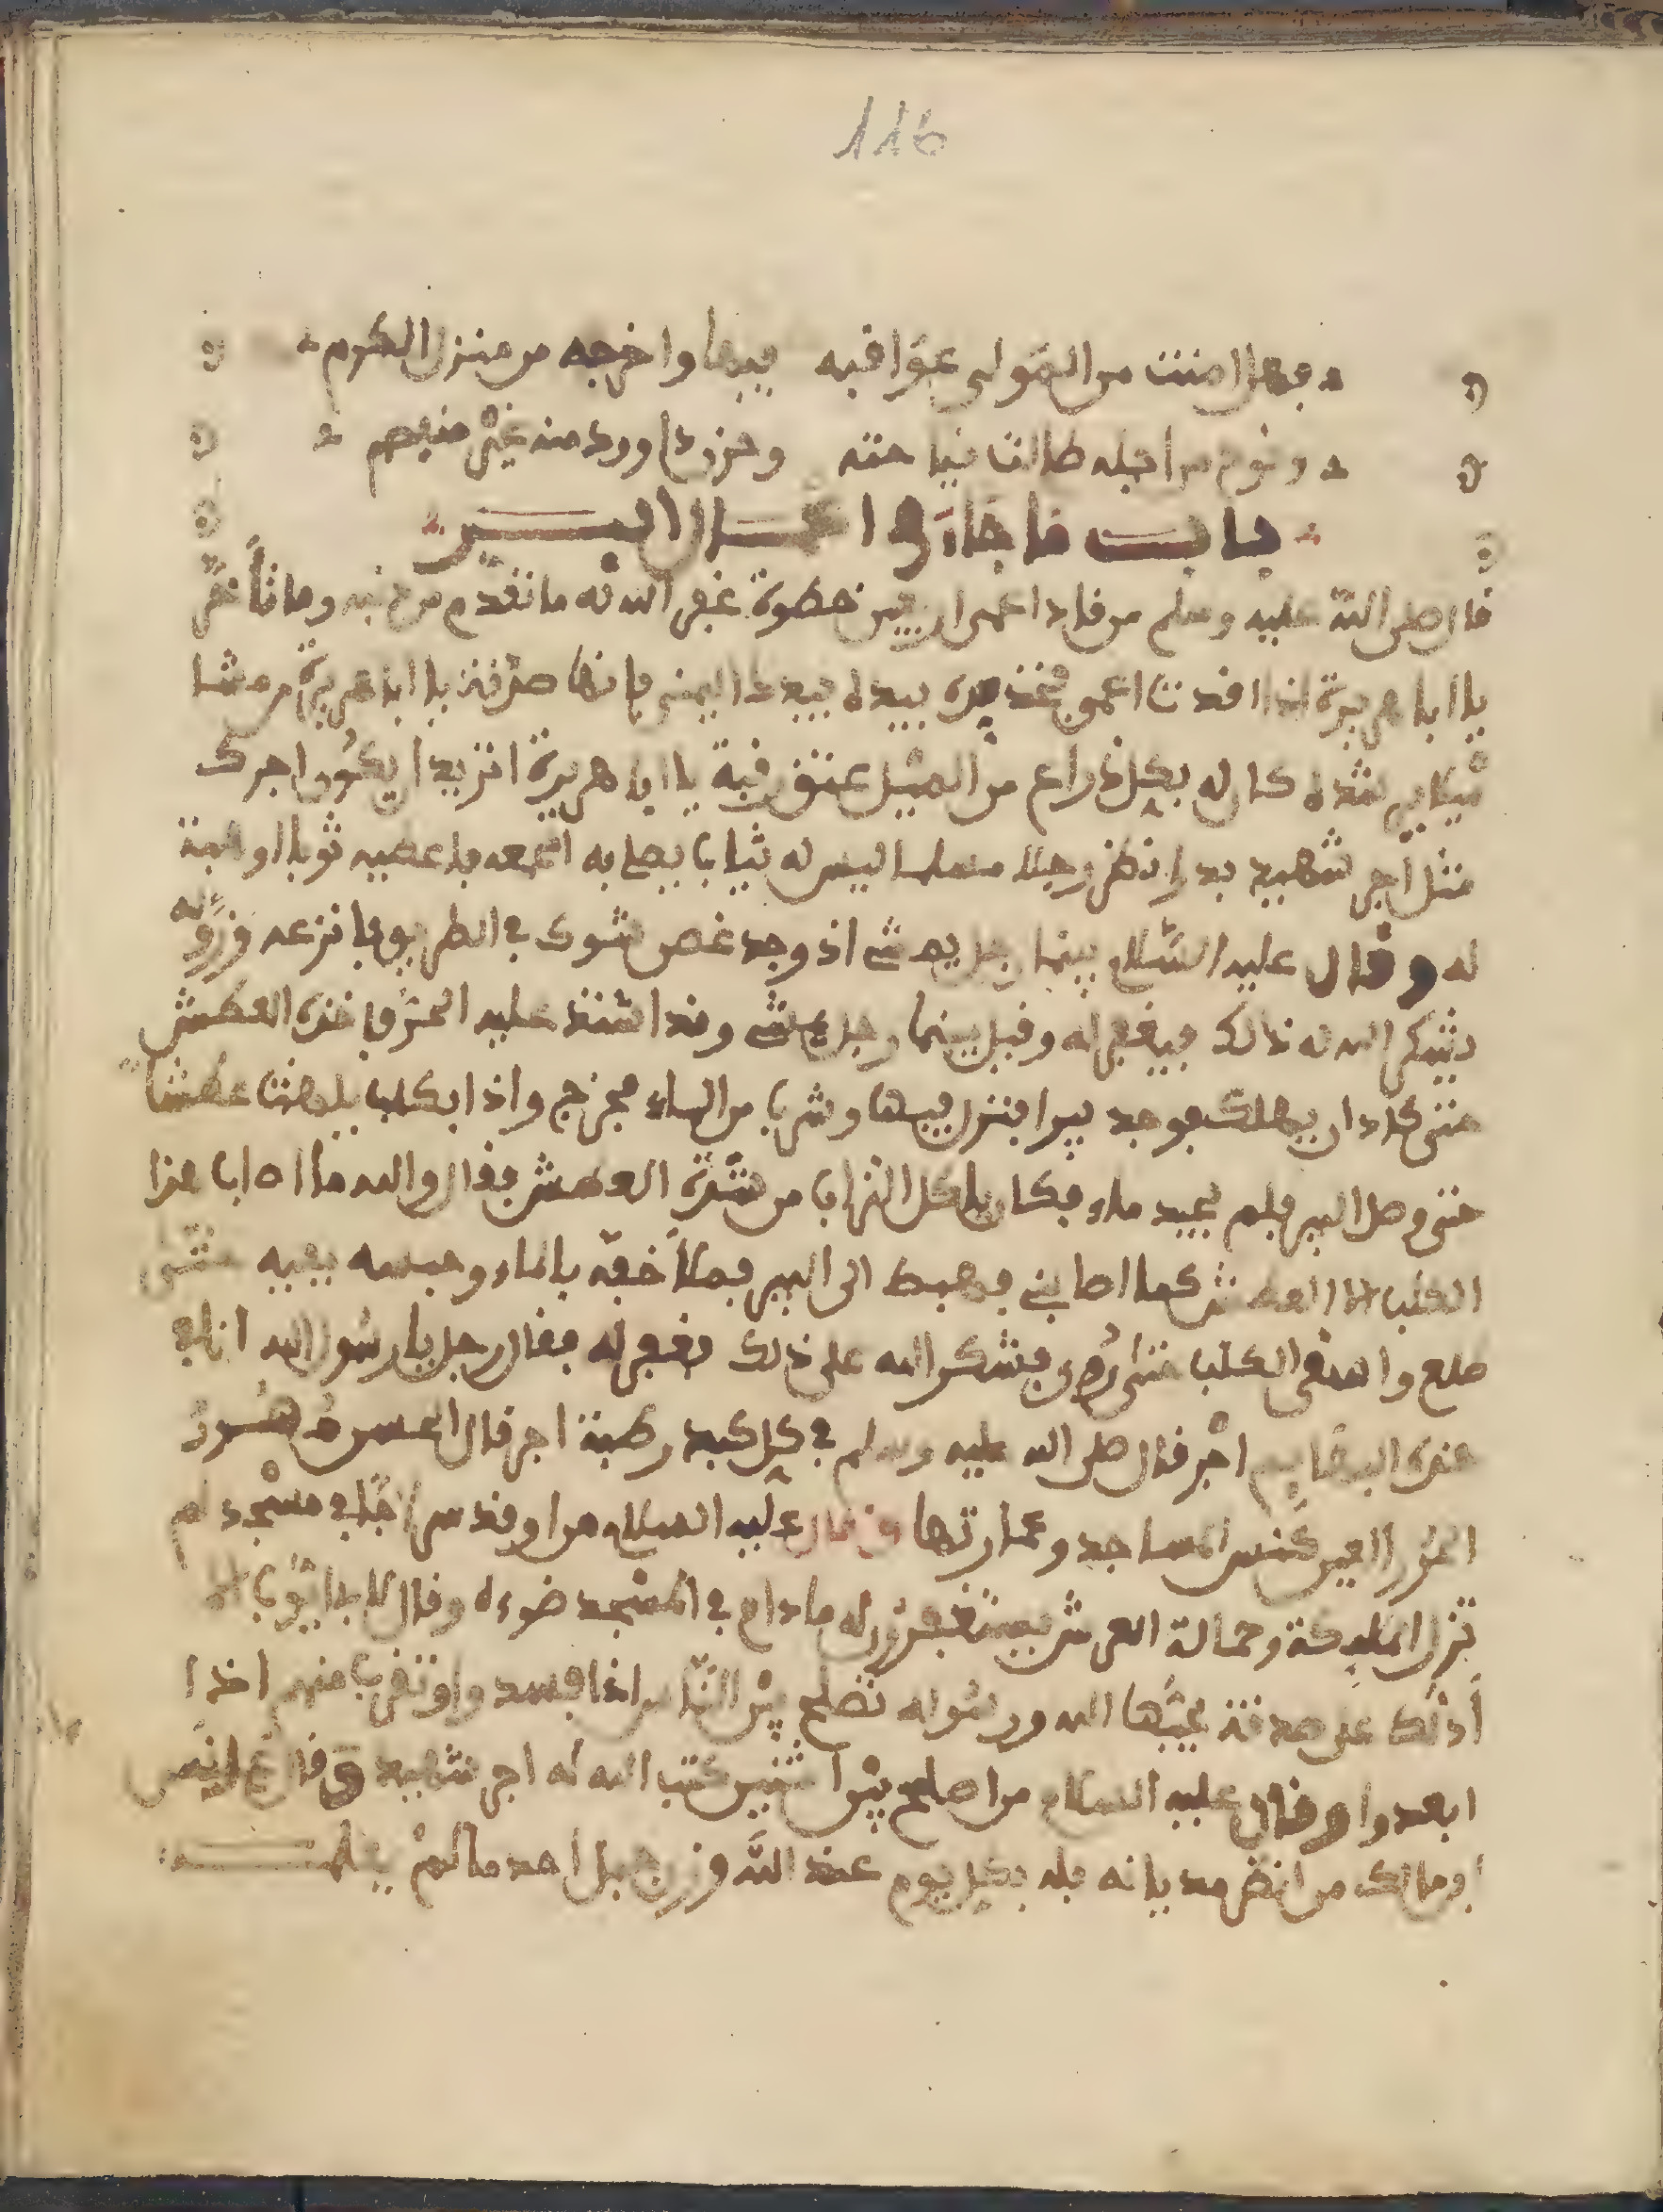 116
فهل امنت من المولى عواقبه فيها واخرجه من منزل الكرم
ونوح من اجله طالت نياحته وحزن داوود منه غير منفصم
باب ما جاء في اعمال البر
قال صلى الله عليه وسلم من قاد اعمى اربعين خطوة غفر الله له ما تقدم من ذنبه وما تأخر
يا ابا هريرة اذا قدت اعمى فخذ يده بيدك اليمنى فانها صدقة يا ابا هريرة من مشا
كان له بكل ذراع من الميل عتق رقبة يا ابا هريرة اتريد ان يكون اجرك
مثل اجر شهيد بدر انظر رجلا مسلما ليس له ثيابا يصلي به الجمعه فاعطيه ثوبا او هبة
له وقال عليه السلام بينما رجل يمشي اذ وجد غصن شوك في الطريق فانزعه
يشكر الله له ذالك فيغفر له وقيل بينما رجل يمشي وقد اشتد عليه الحر فاخذه العطش
حتى كاد ان يهلك فوجد بيرا فنزل فيها وشرب من الماء فخرج واذا بكلب يلهث عطشا
حتى وصل البير فلم يجد ماء فكان ياكل التراب من شدة العطش فقال والله ما اصاب هذا
الكلب الا العطش كما اصابني فهبط الى البير فملأ خفه بالماء وحبسه بفيه حتى
طلع واسقى الكلب حتى روى فشكر الله على ذلك فغفر له فقال رجل يا رسول الله انا في
هذه البهايم اجر قال صلى الله عليه وسلم في كل كبد رطبة اجر قال الحسن مهور
الحور العين كنس المساجد وعمارتها وقال عليه السلام من اوقد سراجا في مسجد لم
تزل المليكة وحمالة العرش يستغفرون له ما دام في المسجد ضوءه وقال لابا ايوب الا
أدلك على صدقة يحبها الله ورسوله تصلح بين الناس اذا فسدوا وتقرب منهم اذا
ابعدوا وقال عليه السلام من اصلح بين اثنين كتب الله له اجر شهيد وقال انس
ابن مالك من انظر مديانه فله بكل يوم عند الله وزن جبل احد ما لم يطلبه